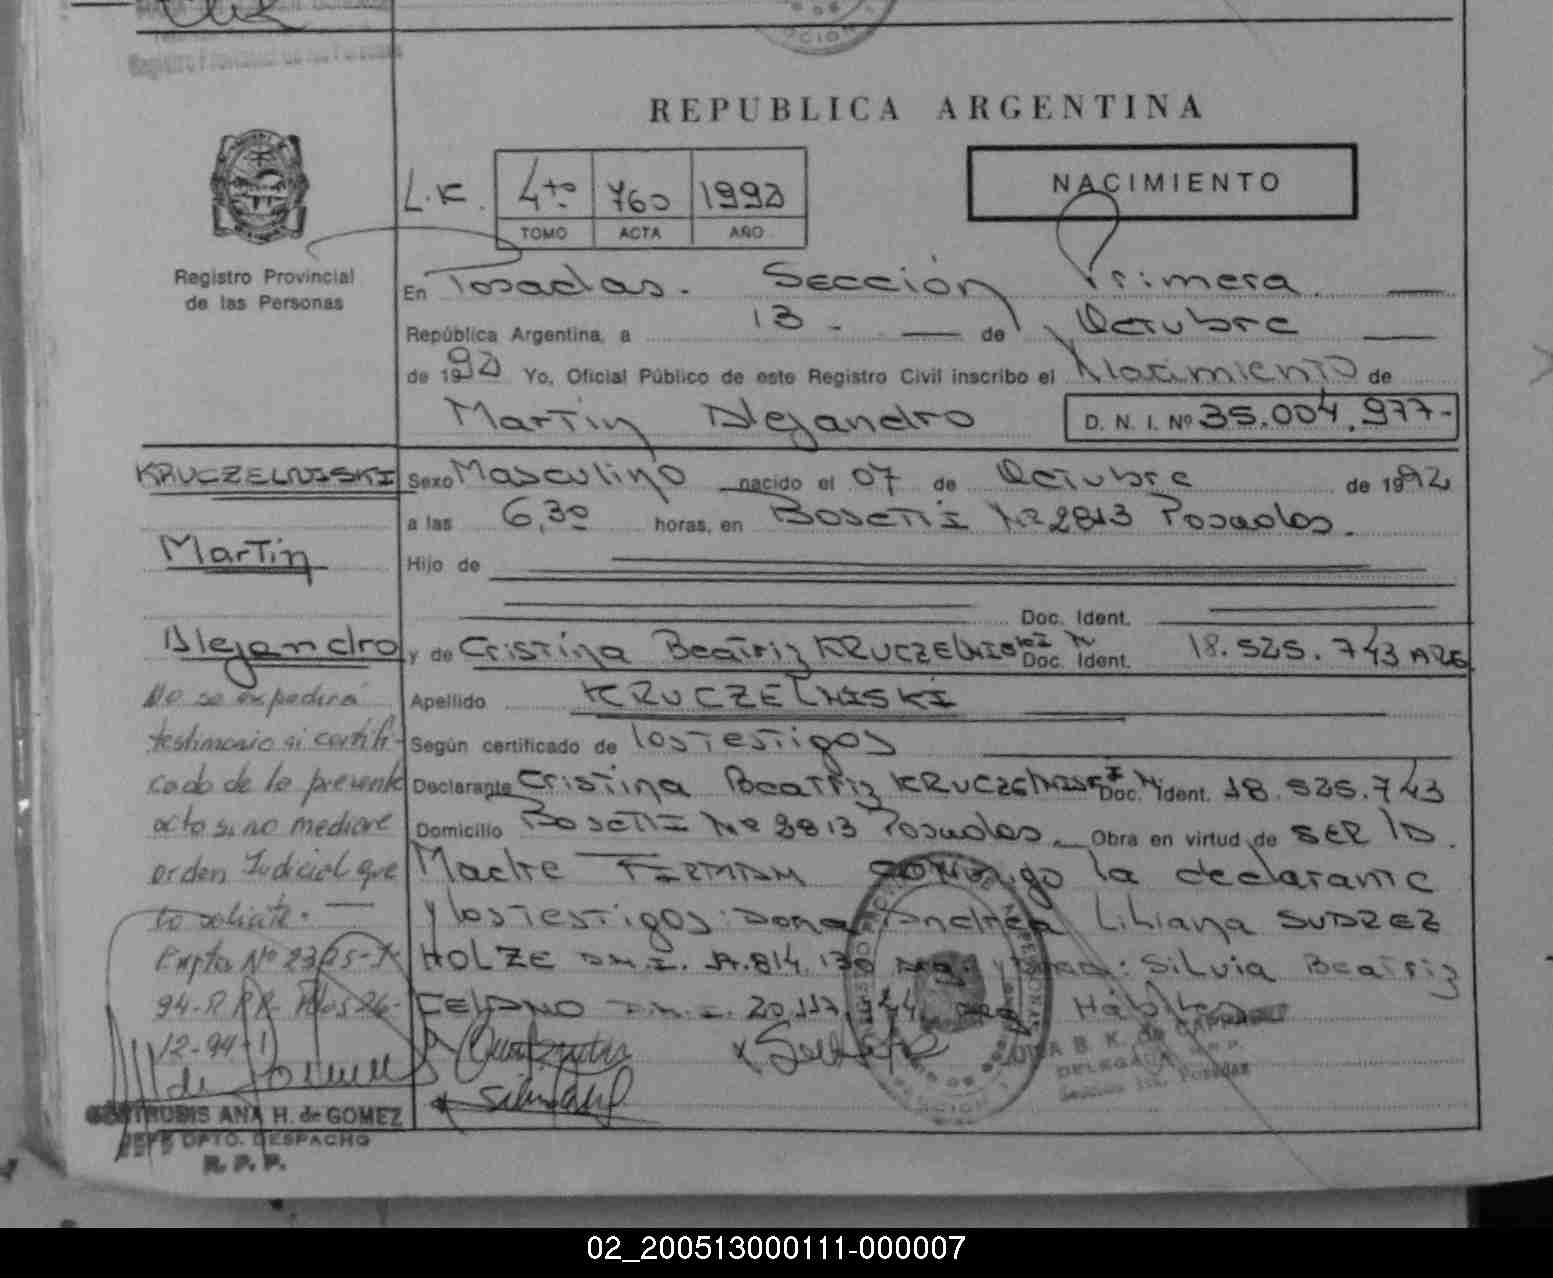 Registro Provincial de las Personas
REPUBLICA ARGENTINA
L.K. 4to 760 1992
TOMO ACTA AÑO
NACIMIENTO
Registro Provincial
de las Personas
En Posadas. Sección Primera
República Argentina, a 13 de Octubre
de 1992 Yo, Oficial Público de este Registro Civil inscribo el Nacimiento de
Martín Alejandro D. N. I. Nº 35.004.977-
KRUCZELNISKI Sexo Masculino nacido el 07 de Octubre de 1992
a las 6,30 horas, en Bosetti Nº 2813 Posadas.
Martín
Hijo de
Doc. Ident.
Alejandro y de Cristina Beatriz KRUCZELNISKI Doc. Ident. 18.525.743 ARG
No se expedirá Apellido KRUCZELNISKI
testimonio ni certifi- Según certificado de los Testigos
cado de la presente Declarante Cristina Beatriz KRUCZELNISKI Doc. Ident. 18.525.743
acta si no mediare Domicilio Bosetti Nº 2813 Posadas. Obra en virtud de SER la
orden Judicial que Madre FIRMAN conmigo la declarante
lo solicite. y los Testigos: Doña Andrea Liliana SUAREZ
Expte Nº HOLZE D.N.I. y Doña: Silvia Beatriz
D.N.I. Hábiles
12-94-
GERTRUDIS ANA H. de GOMEZ
JEFE DPTO. DESPACHO
R. P. P.
B. K. de
DELEGADA R.R.P.
Sección 1ra. Posadas
02_200513000111-000007